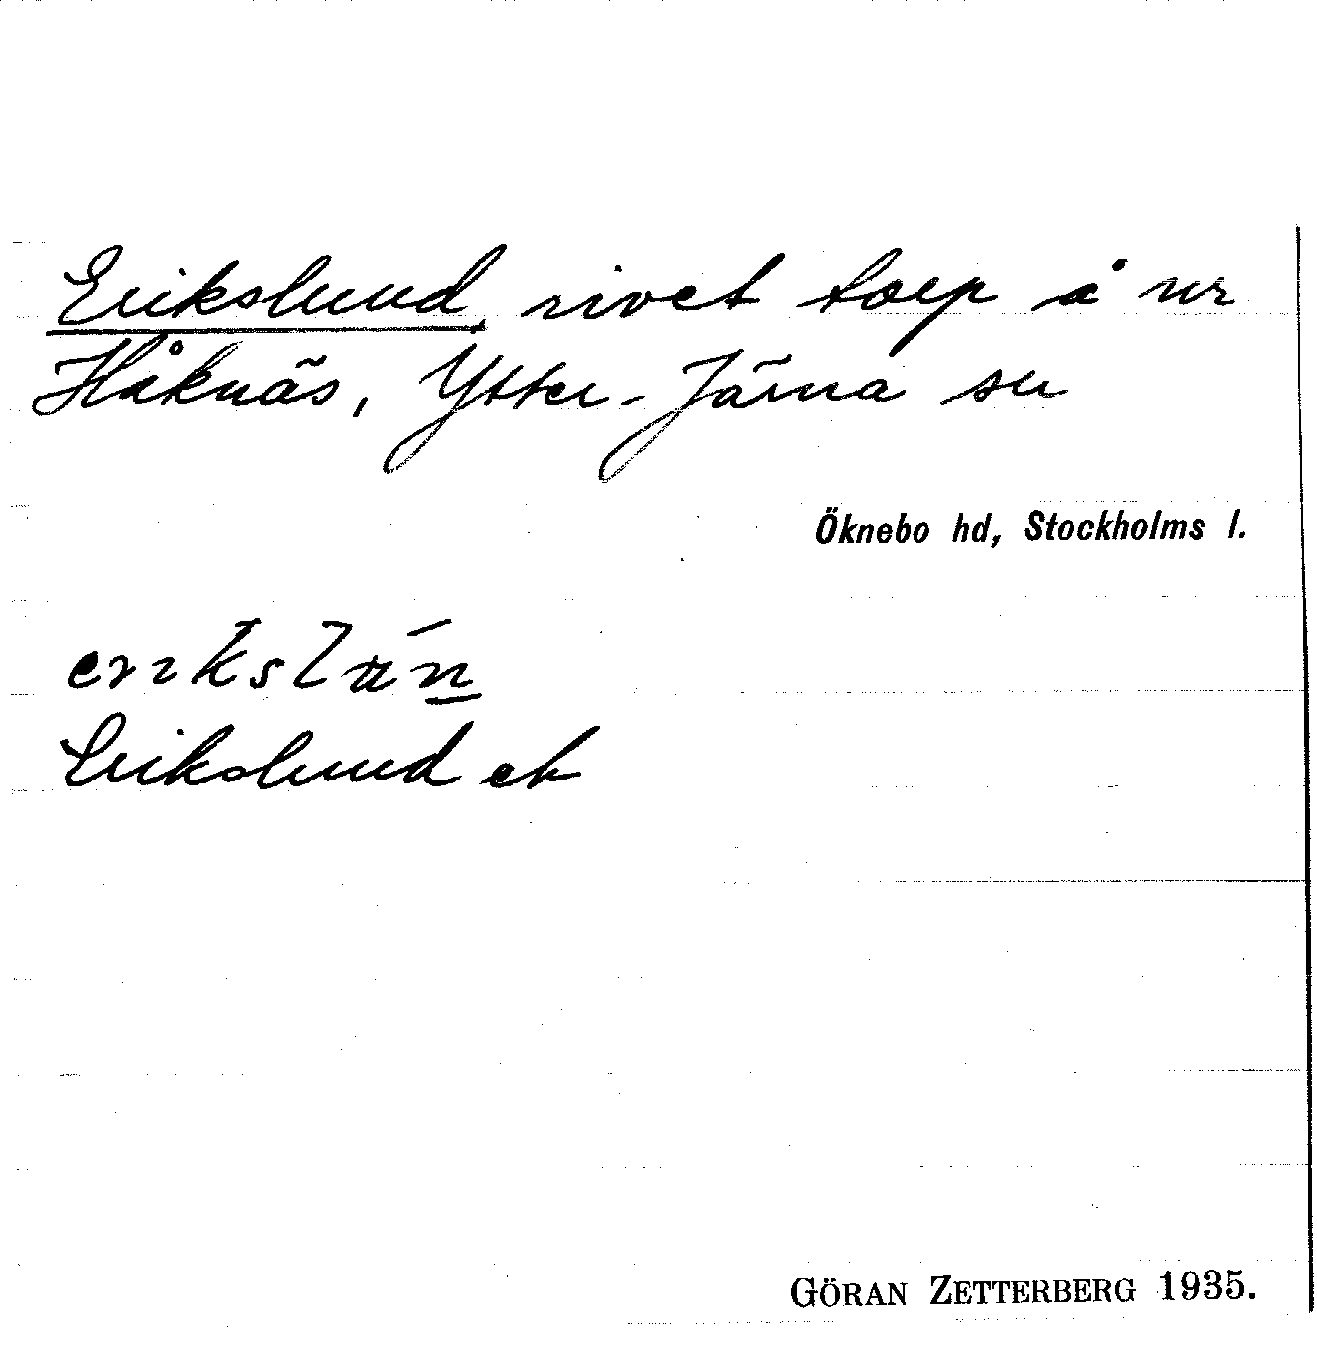 Erikslund, rivet torp å nr
Håknäs, Ytter-Järna sn
Öknebo hd, Stockholms l.
Erikslund ek
GÖRAN ZETTERBERG 1935.